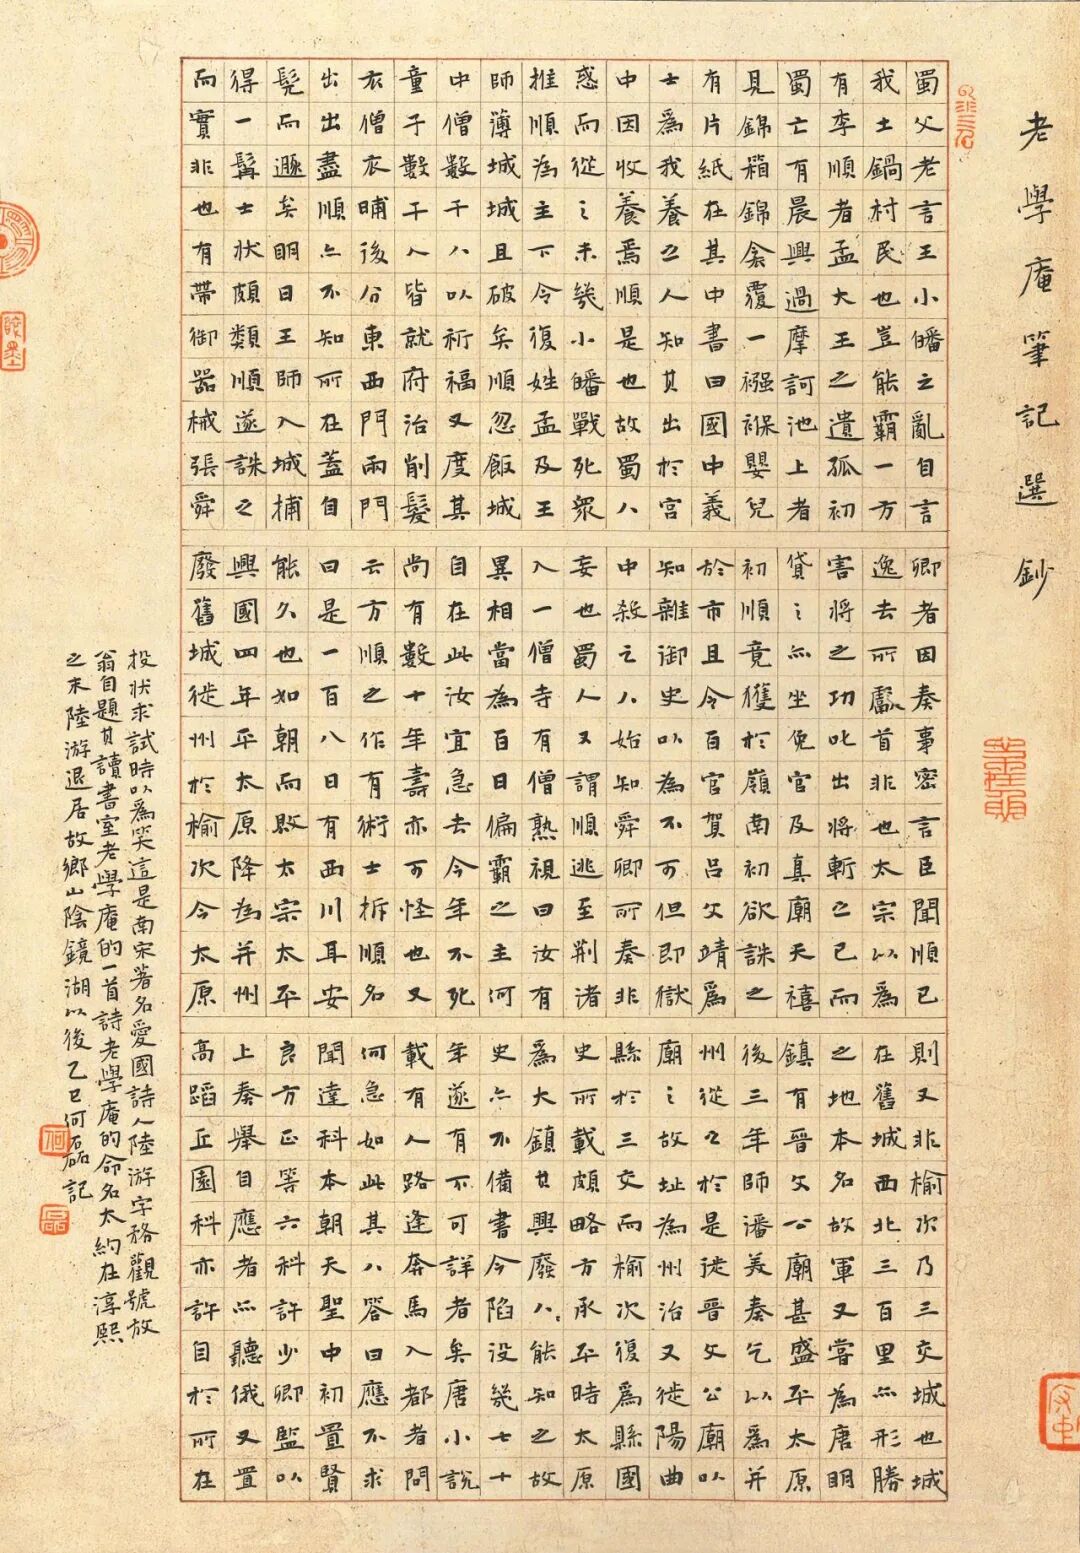 老學庵筆記選鈔
蜀父老言王小皤之亂自言
我土鍋村民也豈能霸一方
有李順者孟大王之遺孤初
蜀亡有晨興過摩訶池上者
見錦箱錦衾覆一襁褓嬰兒
有片紙在其中書曰國中義
士為我養之人知其出於宮
中因收養焉順是也故蜀人
惑而從之未幾小皤戰死眾
推順為主下令復姓孟及王
師薄城城且破矣順忽飯城
中僧數千人以祈福又度其
童子數千人皆就府治削髮
衣僧衣晡後分東西門兩門
出出盡順亦不知所在蓋自
髡而遯矣明日王師入城捕
得一髯士狀頗類順遂誅之
而實非也有帶御器械張舜
卿者因奏事密言臣聞順已
逸去所獻首非也太宗以為
害將之功叱出將斬之已而
貸之亦坐免官及真廟天禧
初順竟獲於嶺南初欲誅之
於市且令百官賀呂文靖爲
知雜御史以為不可但即獄
中殺之人始知舜卿所奏非
妄也蜀人又謂順逃至荆渚
入一僧寺有僧熟視曰汝有
異相當為百日偏霸之主何
自在此汝宜急去今年不死
尚有數十年壽亦可怪也又
云方順之作有術士拆順名
曰是一百八日有西川耳安
能久也如朝而敗太宗太平
興國四年平太原降為并州
廢舊城徙州於榆次今太原
則又非榆次乃三交城也城
在舊城西北三百里亦形勝
之地本名故軍又嘗為唐明
鎮有晉文公廟甚盛平太原
後三年師潘美奏乞以爲并
州從之於是徙晉文公廟以
廟之故址為州治又徙陽曲
縣於三交而榆次復爲縣國
史所載頗略方承平時太原
爲大鎮其興廢人能知之故
史亦不備書今陷没幾七十
年遂有不可詳者矣唐小說
載有人路逢奔馬入都者問
何急如此其人答曰應不求
聞達科本朝天聖中初置賢
良方正等六科許少卿監以
上奏舉自應者亦聽俄又置
高蹈丘園科亦許自於所在
投狀求試時以爲笑這是南宋著名愛國詩人陸游字務觀號放
翁自題其讀書室老學庵的一首詩老學庵的命名太約在淳熙
之末陸游退居故鄉山陰鏡湖以後乙巳何磊記
何
磊